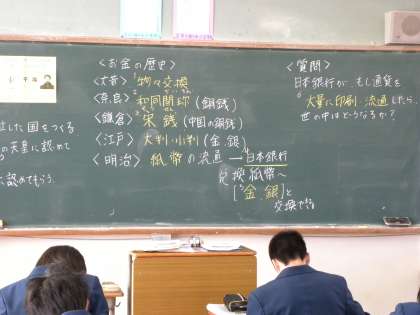 <お金の歴史>
<大昔> 1物々交換
<奈良> 2和同開珎 (銅銭)
<鎌倉> 3宋銭 (中国の銅銭)
<江戸> 大判・小判 (金、銀)
<明治> 紙幣の流通 → 4日本銀行
兌換紙幣〜
[5金、銀]と
交換できる
<質問>
日本銀行が、もし通貨を
6大量に印刷・流通したら、
世の中はどうなるか?
した国をつくる
天皇に認めて
認めてもらう。